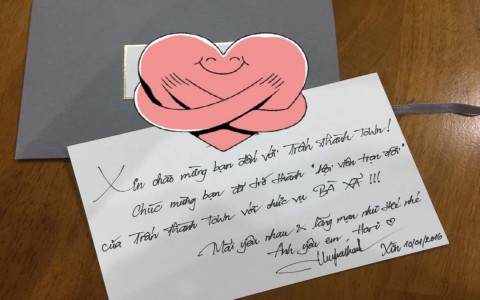 Xin chào mừng bạn đến với Trấn Thành Town!
Chúc mừng bạn đã trở thành "hội viên trọn đời"
của Trấn Thành Town với chức vụ BÀ XÃ!!!
Mãi yêu nhau & lãng mạn như thế nhé
Anh yêu em Hari ♡
Xìn 10/01/2016